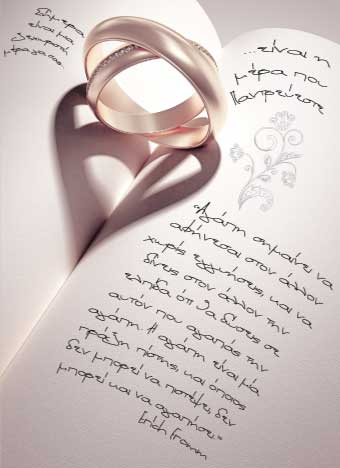 Σήμερα
είναι μια
ξεχωριστή
μέρα για σας...
...είναι η
μέρα που
Παντρεύεστε
"Αγάπη σημαίνει να
αφήνεσαι στον άλλον
χωρίς εγγυήσεις, και να
δίνεις στον άλλον την
ελπίδα ότι θα δώσεις σε
αυτόν που αγαπάς την
αγάπη. Η αγάπη είναι μία
πράξη πίστης, και όποιος
δεν μπορεί να πιστέψει, δεν
μπορεί και να αγαπήσει."
Erich Fromm